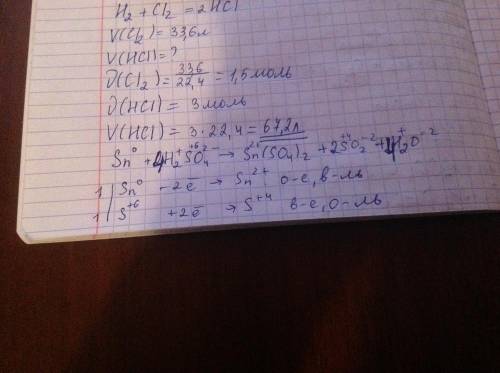 H₂ + Cl₂ = 2HCl
V(Cl₂) = 33,6л
V(HCl) = ?
∂(Cl₂) = 33,6/22,4 = 1,5 моль
∂(HCl) = 3 моль
V(HCl) = 3 · 22,4 = 67,2л
Sn⁰ + 4H₂⁺S⁺⁶O₄²⁻ → Sn(SO₄)₂ + 2S⁺⁴O₂⁻² + 4H₂⁺O⁻²
1 | Sn⁰ - 2ē → Sn²⁺ о-е, в-ль
1 | S⁺⁶ + 2ē → S⁺⁴ в-е, о-ль